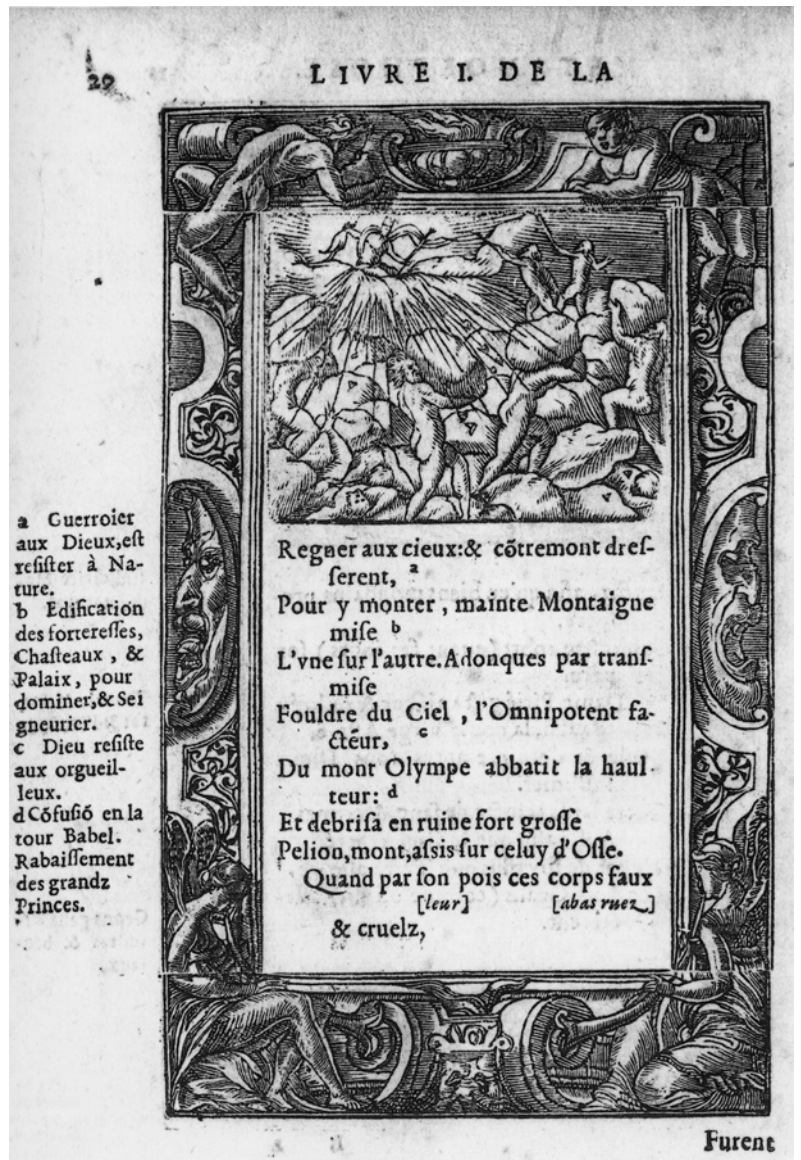 20
LIVRE I. DE LA
a Guerroier
aux Dieux,eſt
reſiſter à Na-
ture.
b Edification
des fortereſſes,
Chaſteaux , &
Palaix, pour
dominer,& Sei
gneurier.
c Dieu reſiſte
aux orgueil-
leux.
d Cõfuſiõ en la
tour Babel.
Rabaiſſement
des grandz
Princes.
Regner aux cieux:& cõtremont dreſ-
ſerent, a
Pour y monter , mainte Montaigne
miſe b
L'vne ſur l'autre. Adonques par tranſ-
miſe
Fouldre du Ciel , l'Omnipotent fa-
ctéur, c
Du mont Olympe abbatit la haul-
teur: d
Et debriſa en ruine fort groſſe
Pelion,mont,aſsis ſur celuy d'Oſſe.
Quand par ſon pois ces corps faux
[leur] [abas ruez]
& cruelz,
Furent